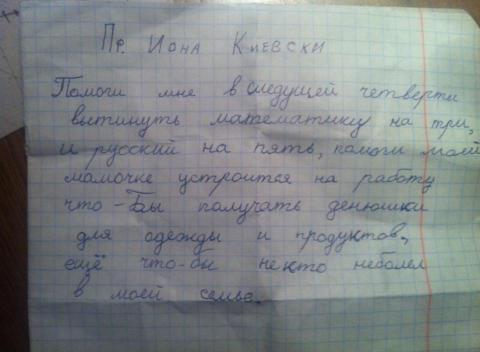 Пр. Иона Киевски
Помоги мне в следущей четверти
вытинуть математику на три,
и русский на пять, помоги моей
мамочке устроится на работу
что-бы получать денюшки
для одежды и продуктов,
ещё что-бы некто неболел
в моей семье.